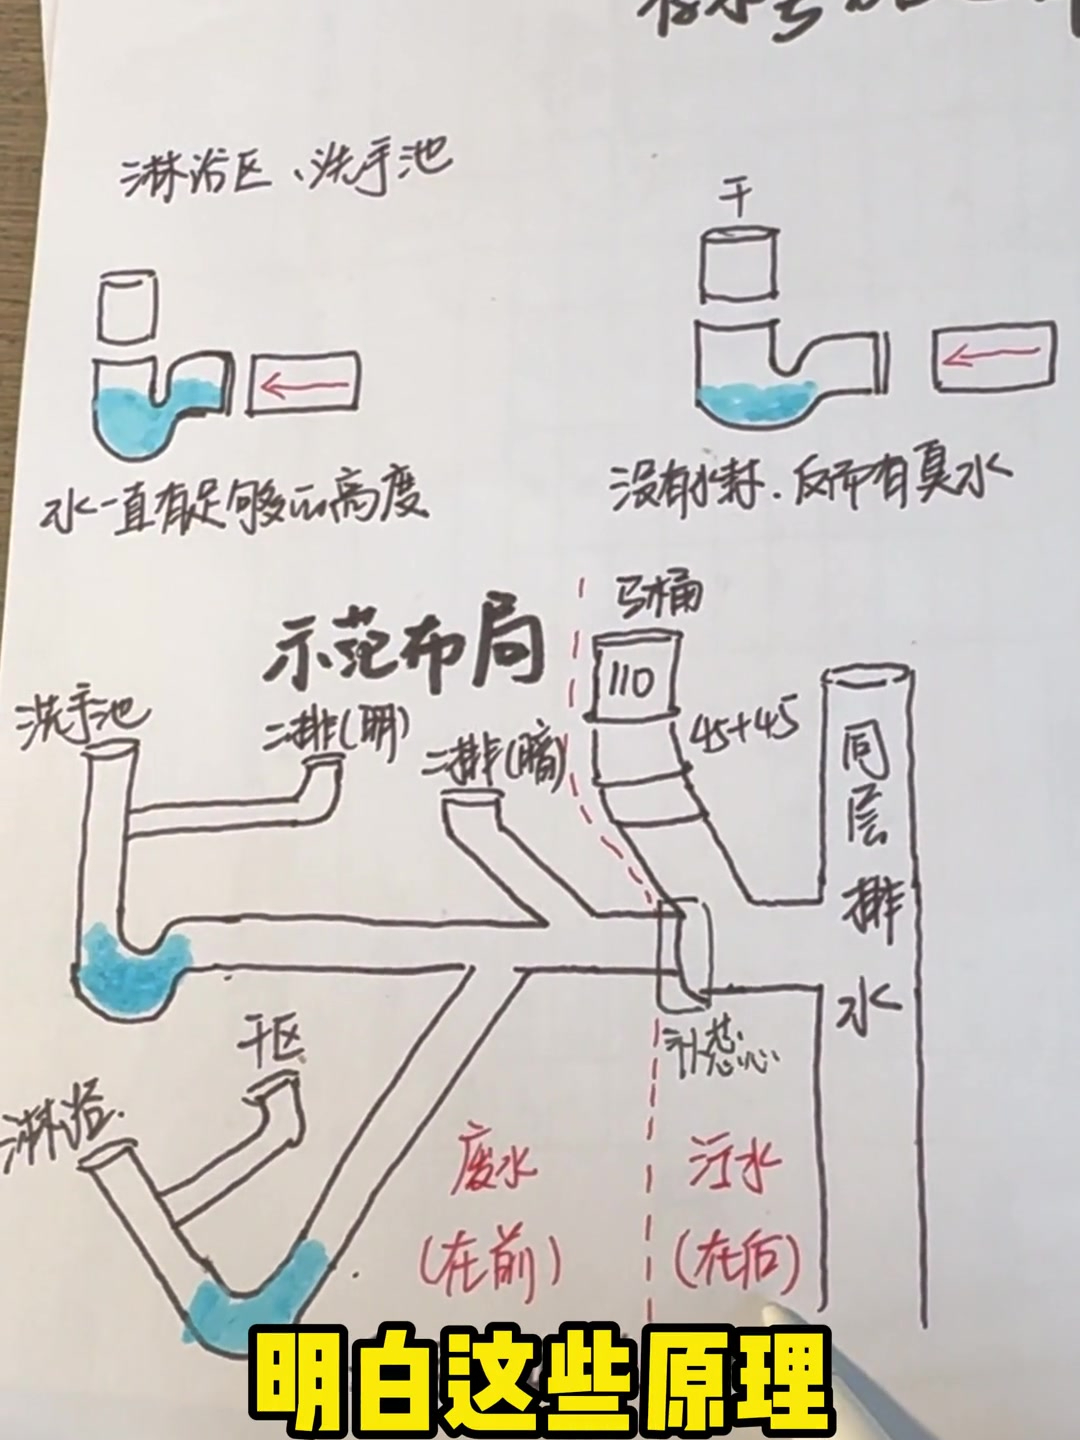 淋浴区、洗手池
干
水一直有足够的高度
没有水封.反而有臭水
示范布局
马桶
110
45+45
洗手池
二排(明)
二排(暗)
同层排水
补芯
干区
淋浴.
废水
(在前)
污水
(在后)
明白这些原理